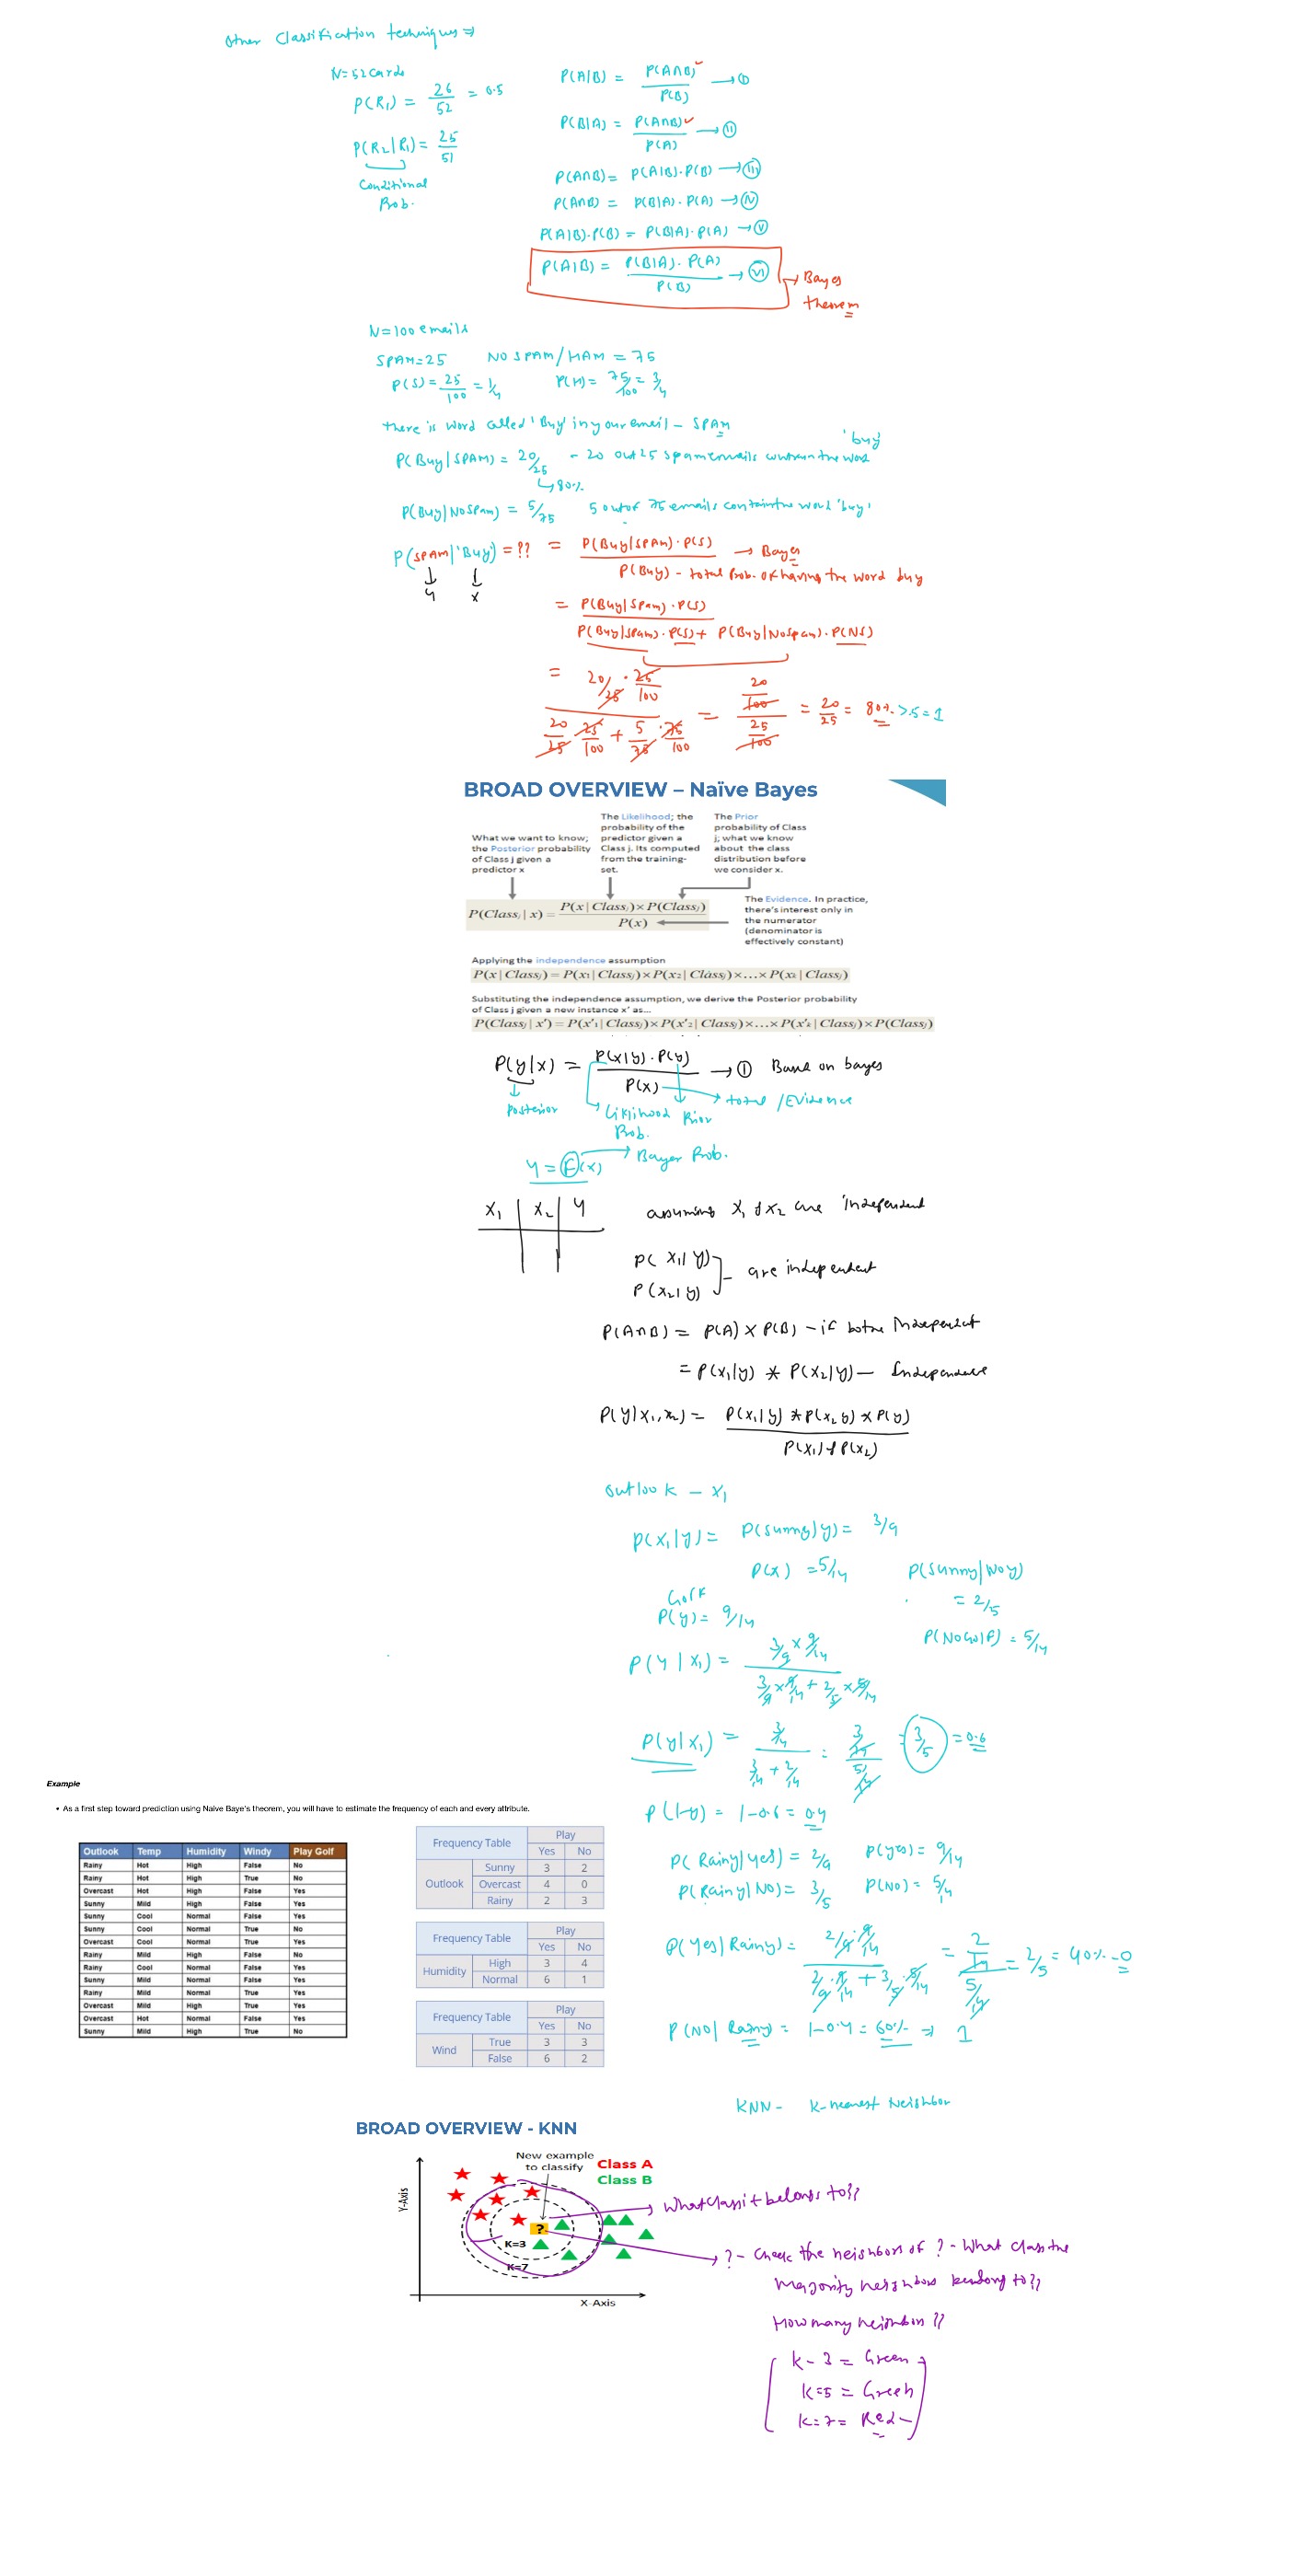 Other Classification techniques ⇒
N=52 Cards
P(R₁) = 26/52 = 0.5
P(R₂|R₁) = 25/51
Conditional
Prob.
P(A|B) = P(A∩B)/P(B) → I
P(B|A) = P(A∩B)/P(A) → II
P(A∩B) = P(A|B).P(B) → III
P(A∩B) = P(B|A).P(A) → IV
P(A|B).P(B) = P(B|A).P(A) → V
P(A|B) = P(B|A).P(A)/P(B) → VI → Bayes
theorem
N=100 emails
SPAM=25 NO SPAM/HAM = 75
P(S) = 25/100 = 1/4 P(H) = 75/100 = 3/4
there is word called 'Buy' in your email - SPAM
P(Buy|SPAM) = 20/25 - 20 out 25 spam emails contain the word 'buy'
↳ 80%
P(Buy|NoSpam) = 5/75 5 out of 75 emails contain the word 'buy'
P(SPAM|'Buy') = ?? = P(Buy|SPAM).P(S) / P(Buy) → Bayes
P(Buy) - total Prob. of having the word buy
y x
= P(Buy|Spam).P(S) / P(Buy|Spam).P(S) + P(Buy|NoSpam).P(NS)
= 20/25 . 25/100 / 20/25 . 25/100 + 5/75 . 75/100 = 20/100 / 25/100 = 20/25 = 80% >.5 = 1
BROAD OVERVIEW – Naïve Bayes
What we want to know;
the Posterior probability
of Class j given a
predictor x
The Likelihood; the
probability of the
predictor given a
Class j. Its computed
from the training-
set.
The Prior
probability of Class
j; what we know
about the class
distribution before
we consider x.
P(Classⱼ | x) = P(x | Classⱼ) × P(Classⱼ) / P(x)
The Evidence. In practice,
there's interest only in
the numerator
(denominator is
effectively constant)
Applying the independence assumption
P(x | Classⱼ) = P(x₁ | Classⱼ) × P(x₂ | Classⱼ) × … × P(xₖ | Classⱼ)
Substituting the independence assumption, we derive the Posterior probability
of Class j given a new instance x' as...
P(Classⱼ | x') = P(x'₁ | Classⱼ) × P(x'₂ | Classⱼ) × … × P(x'ₖ | Classⱼ) × P(Classⱼ)
P(y|x) = P(x|y).P(y) / P(x) → I Base on bayes
Posterior
Liklihood
Prob.
Prior
total / Evidence
y = F(x) → Bayes Prob.
X₁ X₂ Y
assuming X₁ & X₂ are independent
P(X₁|Y)
P(X₂|Y)
are independent
P(A∩B) = P(A) × P(B) - if both Independent
= P(x₁|y) * P(x₂|y) - Independence
P(y|x₁,x₂) = P(x₁|y) * P(x₂ y) * P(y) / P(x₁) * P(x₂)
outlook - X₁
P(X₁|y) = P(Sunny|y) = 3/9
P(x) = 5/14
P(Sunny|No y)
= 2/5
Golf
P(y) = 9/14
P(NoGolf) = 5/14
P(y | x₁) = 3/9 × 9/14 / 3/9 × 9/14 + 2/5 × 5/14
P(y|x₁) = 3/14 / 3/14 + 2/14 = 3/14 / 5/14 = 3/5 = 0.6
P(1-y) = 1-0.6 = 0.4
P(Rainy|Yes) = 2/9 P(yes) = 9/14
P(Rainy|No) = 3/5 P(No) = 5/14
P(Yes|Rainy) = 2/9 . 9/14 / 2/9 . 9/14 + 3/5 . 5/14 = 2/14 / 5/14 = 2/5 = 40% - 0
P(No|Rainy) = 1-0.4 = 60% ⇒ 1
Example
• As a first step toward prediction using Naive Baye's theorem, you will have to estimate the frequency of each and every attribute.
Outlook Temp Humidity Windy Play Golf
Rainy Hot High False No
Rainy Hot High True No
Overcast Hot High False Yes
Sunny Mild High False Yes
Sunny Cool Normal False Yes
Sunny Cool Normal True No
Overcast Cool Normal True Yes
Rainy Mild High False No
Rainy Cool Normal False Yes
Sunny Mild Normal False Yes
Rainy Mild Normal True Yes
Overcast Mild High True Yes
Overcast Hot Normal False Yes
Sunny Mild High True No
Frequency Table Play
Yes No
Outlook Sunny 3 2
Overcast 4 0
Rainy 2 3
Frequency Table Play
Yes No
Humidity High 3 4
Normal 6 1
Frequency Table Play
Yes No
Wind True 3 3
False 6 2
KNN - K-nearest Neighbor
BROAD OVERVIEW - KNN
New example
to classify
Class A
Class B
Y-Axis
?
K=3
K=7
X-Axis
What class it belongs to??
? - Check the neighbors of ? - What class the
majority neighbors belong to??
How many neighbors ??
K-3 = Green
K=5 = Green
K=7 = Red